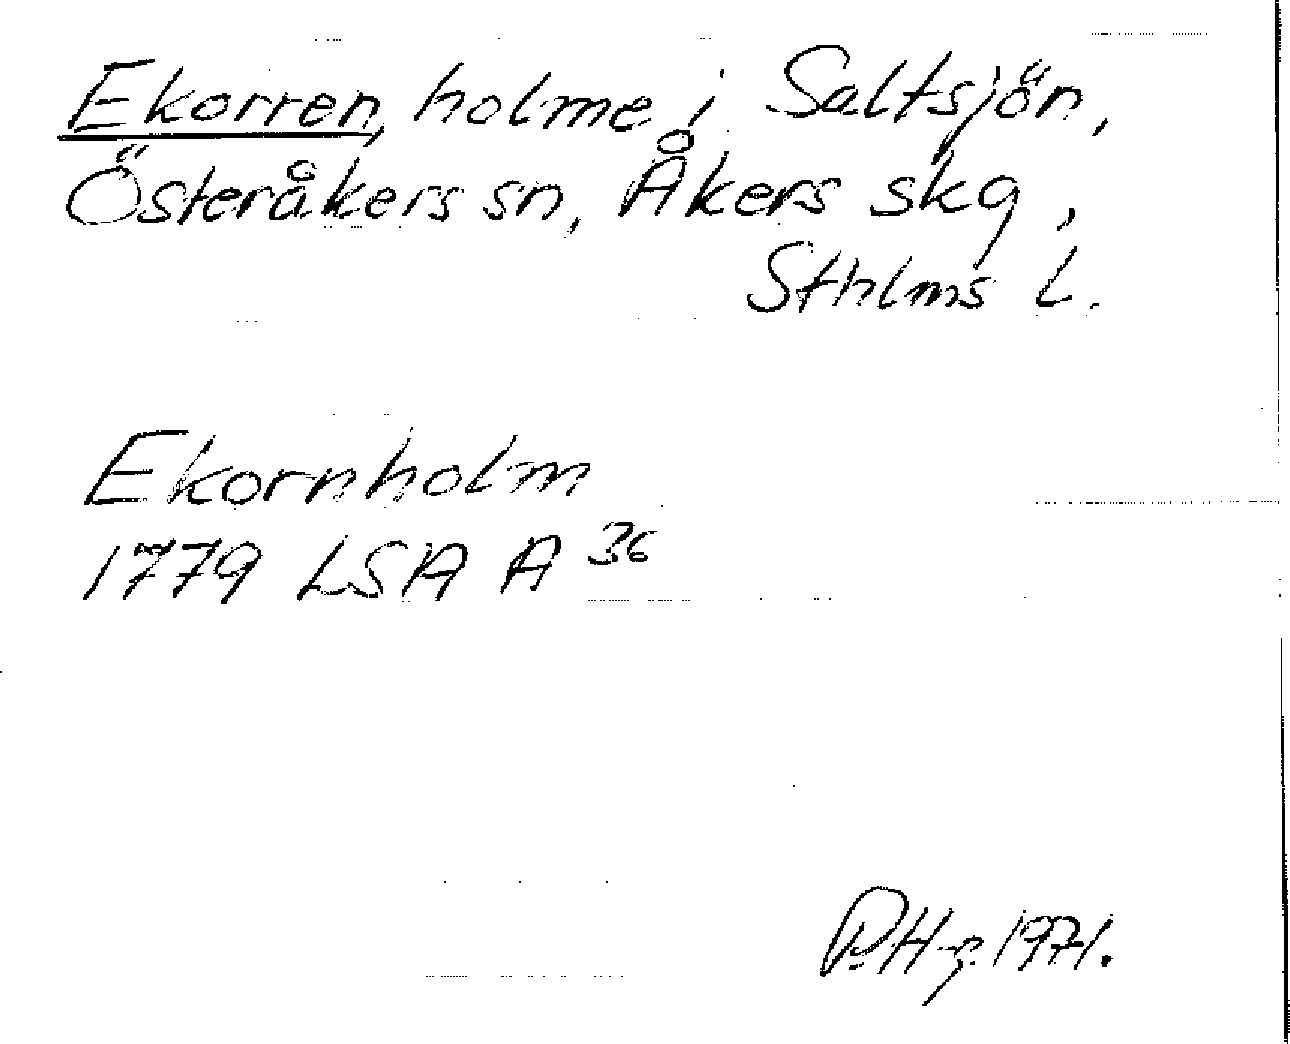 Ekorren, holme i Saltsjön,
Österåkers sn, Åkers skg,
Sthlms l.
Ekornholm
1779 LSA A 36
P. H-g. 1971.